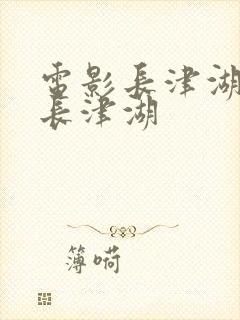 電影長津湖
長津湖
簿嗬